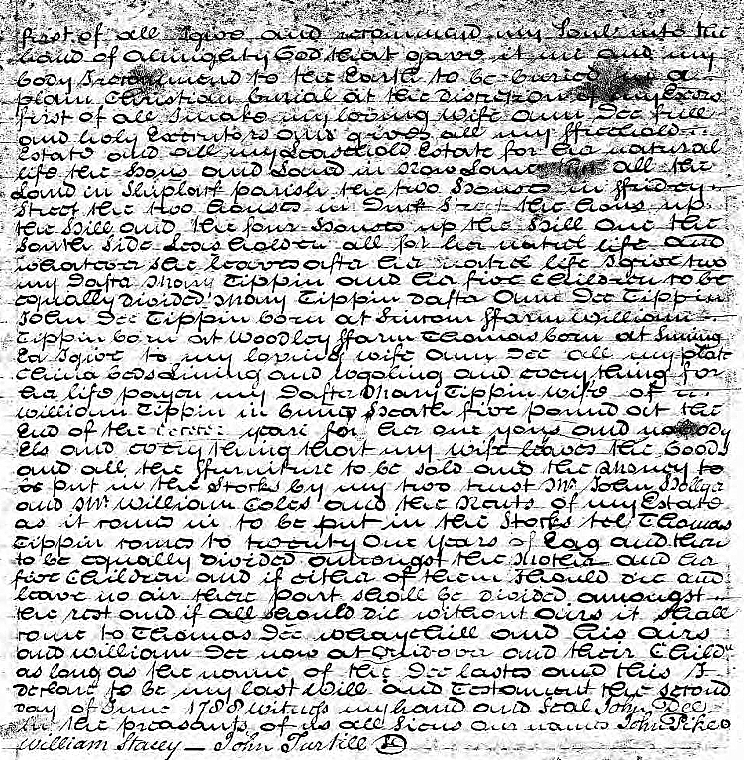 first of all I give and recommend my Soul into the
hand of almighty God that gave it me and my
body I recommend to the Earth to be buried in a
plain Christian burial at the discretion of my Exors
first of all I make my loving wife Ann Dee full
and holy Executors and gives all my ffreehold
Estate and all my Leasehold Estate for her natural
life the Hous and Land in New Lane all the
Land in Shiplack parish the two Houses in ffridey
Street the two houses in Duck Street the hous up
the Hill and the four Houses up the Hill One the
South Side Leas holden all for her natrel life and
whatever she leaves afta her natrel life I give two
my Dafta Mary Tippin and her five Children to be
equally divided Mary Tippin dafta Ann Dee Tippin
John Dee Tippin born at ffarm William
Tippin born at Woodley ffarm Thomas born at
I give to my loveing wife Ann Dee all my plate
China beds Lining and wooling and every thing for
her life payen my Dafta Mary Tippin wife of
William Tippin in Heath five pound att the
End of the yeare for her one yous and nobody
Els and every thing that my wife leaves the Goods
and all the ffurniture to be sold and the Money to
be put in the Stocks by my two trust Mr. John
and Mr. William Coles and the Rents of my Estate
as it comes in to be put in the Stocks tel Thomas
Tippin comes to twenty One years of Eag and then
to be equally divided amongst the Mother and her
five Children and if either of them should die and
leave no air there part shall be divided amongst
the rest and if all should die without Airs it shall
come to Thomas Dee whaychill and his Airs
and William Dee now at Andover and their Childn
as long as the name of the Dee lastes and this I
declare to be my last will and Testament the second
day of June 1788 witness my hand and Seal John Dee
in the preasants of us all Siens our names John Pike
William Stacey — John Turtill